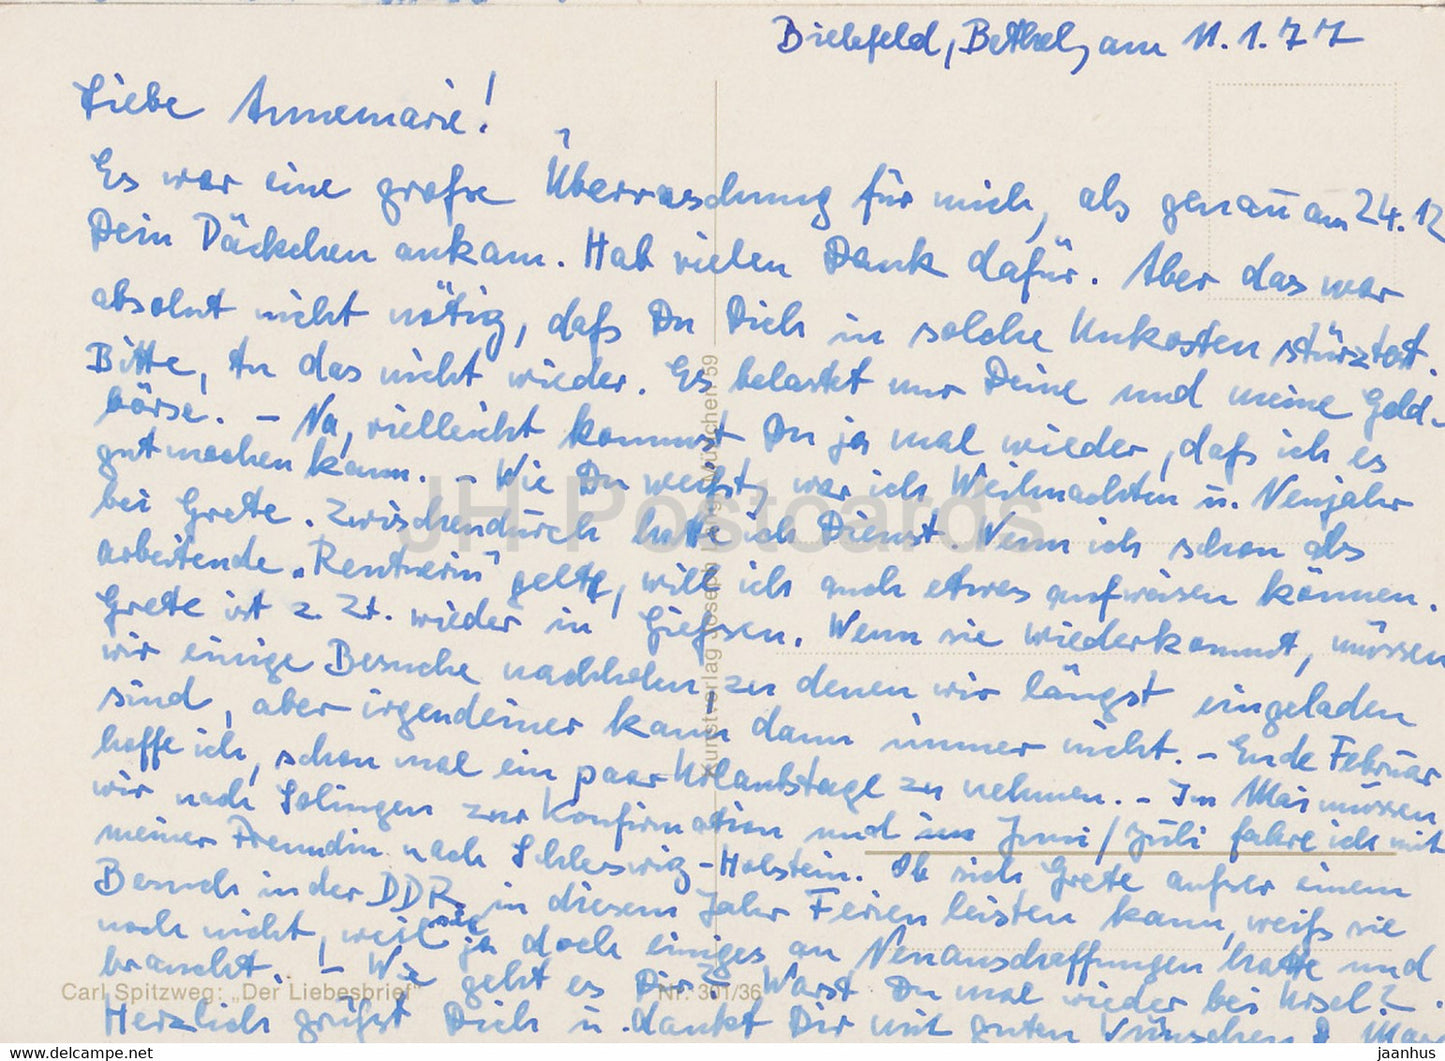 Bielefeld, Bethel, am 11.1.77
Liebe Annemarie!
Es war eine große Überraschung für mich, als genau am 24.12
Dein Päckchen ankam. Hab vielen Dank dafür. Aber das war
absolut nicht nötig, daß Du Dich in solche Unkosten stürztest.
Bitte, tu das nicht wieder. Es belastet nur Deine und meine Geld-
börse. – Na, vielleicht kommst Du ja mal wieder, daß ich es
gutmachen kann. – Wie Du weißt, war ich Weihnachten u. Neujahr
bei Grete. Zwischendurch hatte ich Dienst. Wenn ich schon als
arbeitende „Rentnerin" gelte, will ich auch etwas aufweisen können.
Grete ist z Zt. wieder in Gießen. Wenn sie wiederkommt, müssen
wir einige Besuche nachholen, zu denen wir längst eingeladen
sind, aber irgendeiner kann dann immer nicht. – Ende Februar
hoffe ich, schon mal ein paar Urlaubstage zu nehmen. – Im Mai müssen
wir nach Solingen zur Konfirmation und im Juni/Juli fahre ich mit
meiner Freundin nach Schleswig-Holstein. Ob sich Grete außer einem
Besuch in der DDR, in diesem Jahr Ferien leisten kann, weiß sie
noch nicht, weil sie ja doch einiges an Neuanschaffungen hatte und
braucht. – Wie geht es Dir? Warst Du mal wieder bei Ursel?
Herzlich grüßt Dich u. dankt Dir mit guten Wünschen
Kunstverlag Joseph Lang, München 59
Carl Spitzweg: „Der Liebesbrief"
Nr. 301/36
JH Postcards
hippostcard.com
jaanhus